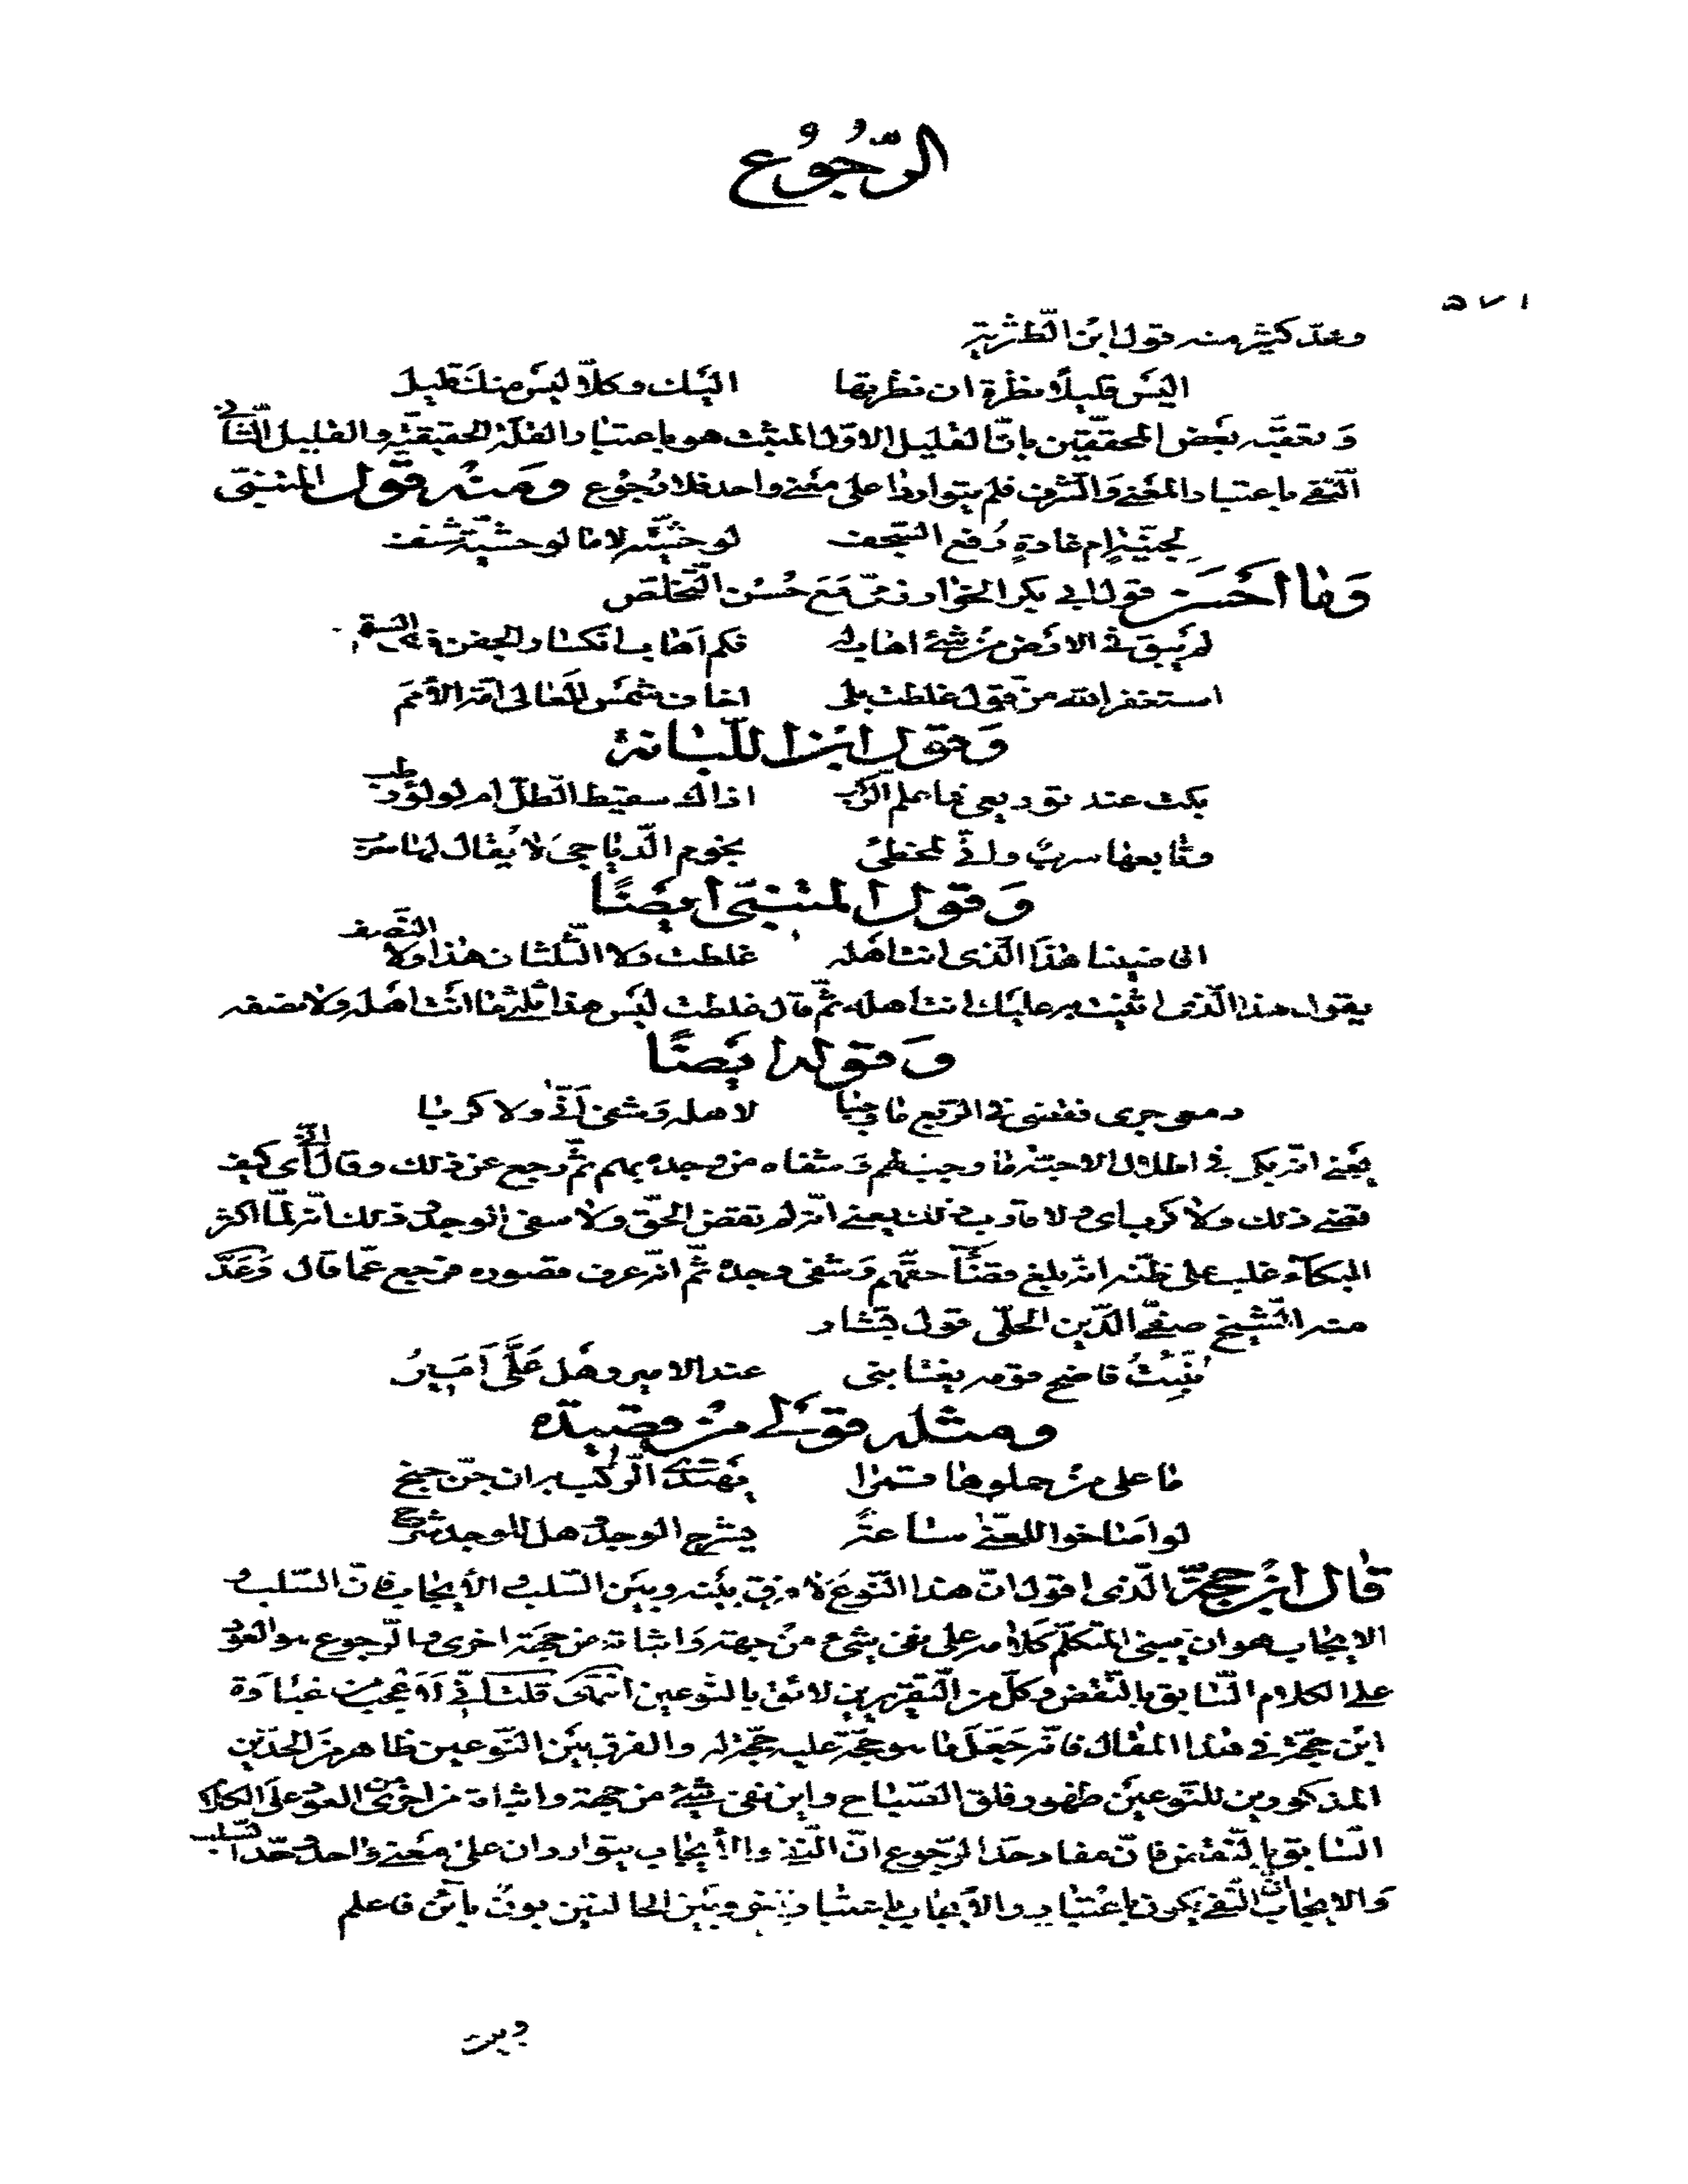 الرّجُوُع
وعدّ كثير منه قول ابن الطّثريّة
اليَسَ قليلًا نظرة ان نظرتها اليَك وكلّا ليَس منك قليل
وَتعقّبه بعَض المحقّقين بانّ القليل الاوّل المثبت هو باعتبار القلّة الحقيقيّة والقليل الثّاني
المنفى باعتبار المعَنى وَالشّرف فلم يتواردا على معَنى واحد فلا رُجُوع وَمنُه قَول المتنبّى
لجنيّةٍ ام غادةٍ رُفع السّجف لوحشيّة لا ما لوحشيّة شنف
وَما احَسَن قول ابى بكر الخوارزمىّ مَعَ حُسُن التّخلّص
لم يَبق فى الارَض منُ شئ اهابه فلم اهاب انكسار الجفن ذى السقم
استغفر الله من قولى غلطت بلى اخاف شمسَ المعالى امّة الأممَ
وَقول ابن اللّبانة
بكت عند توديعى فما علم الرّكب اذاك سقيط الطّلّ ام لولؤ رطب
وتابعها سربٌ وانّى لمخطئ نجوم الدّياجى لا يُقال لها سرب
وَقول المتنبّى ايضًا
الى هذَا الّذى انت اهله غلطت ولا الثّلثان هذا ولا النّصف
يقول هذا الّذى اثنيت به عليَك انت اهله ثمّ قال غلطت ليَس هذا ثلثى ما انَت اهَله ولا نصفه
وَقوله ايَضًا
دمع جرى فقضى فى الرّبع ما وجبا لاهله وَشفى انّى ولا كربا
يعَنى انّه بكى فى اطلال الاحبّة ما وجب لهم وَشفاه من وجده بهم ثمّ رجع عن ذلك وقال انّى اى كيف
قضى ذلك ولا كرب اى ولا قارب ذلك يعنى انّه لم يقض الحقّ ولا شفى الوجد وذلك انّه لمّا اكثر
البكآء غلب على ظنّه انّه بلغ قضآء حقّهم وَشفى وجده ثمّ انّه عرف قصوره فرجع عمّا قال وَعَدّ
منه الشّيخ صفىّ الدّين الحلّى قول بشّار
نُبّئتُ فاضح قومه يغتابنى عند الامير وهَل عَلَىّ امَيرُ
ومثله قولَى منُ قصيدة
ما على منُ حملوها قمرا يهتدى الرّكب به ان جنّ جنح
لو اناخوا للمعنّى ساعةً يشرح الوجد وهل للوجد شرح
قال ابنُ حجّة الّذى اقول انّ هذا النّوعَ لا فرق بيَنه وبيَن السّلب والأيجاب فانّ السّلب و
الايجاب هو ان يبنى المتكلّم كلامه على نفى شئ منُ جهة وَاثباته من جهَة اخرى والرّجوع هو العود
على الكلام السّابق بالنّقض وكلّ من التّقريرين لائق بالنّوعين انتهى قلت انّى لَاَعَجب من غباوة
ابن حجّة فى هذا المقال فانّه جَعَلَ ما هو حجّة عليه حجّة له والفرق بيَن النّوعين ظاهر منَ الحدّين
المذكورين للنّوعيَن ظهور فلق الصّباح واين نفى شئ من جهة واثباته من اخرى من العود علَى الكلام
السّابق بالنّقض فانّ مفاد حدّ الرّجوع انّ النّفى والأيجاب يتواردان على معَنى واحد وحدّ السّلب
وَالايجاب انّ النّفى يكون باعتبار والأيجاب باعتبار وبيَن الحالتين بون بائن فاعلم